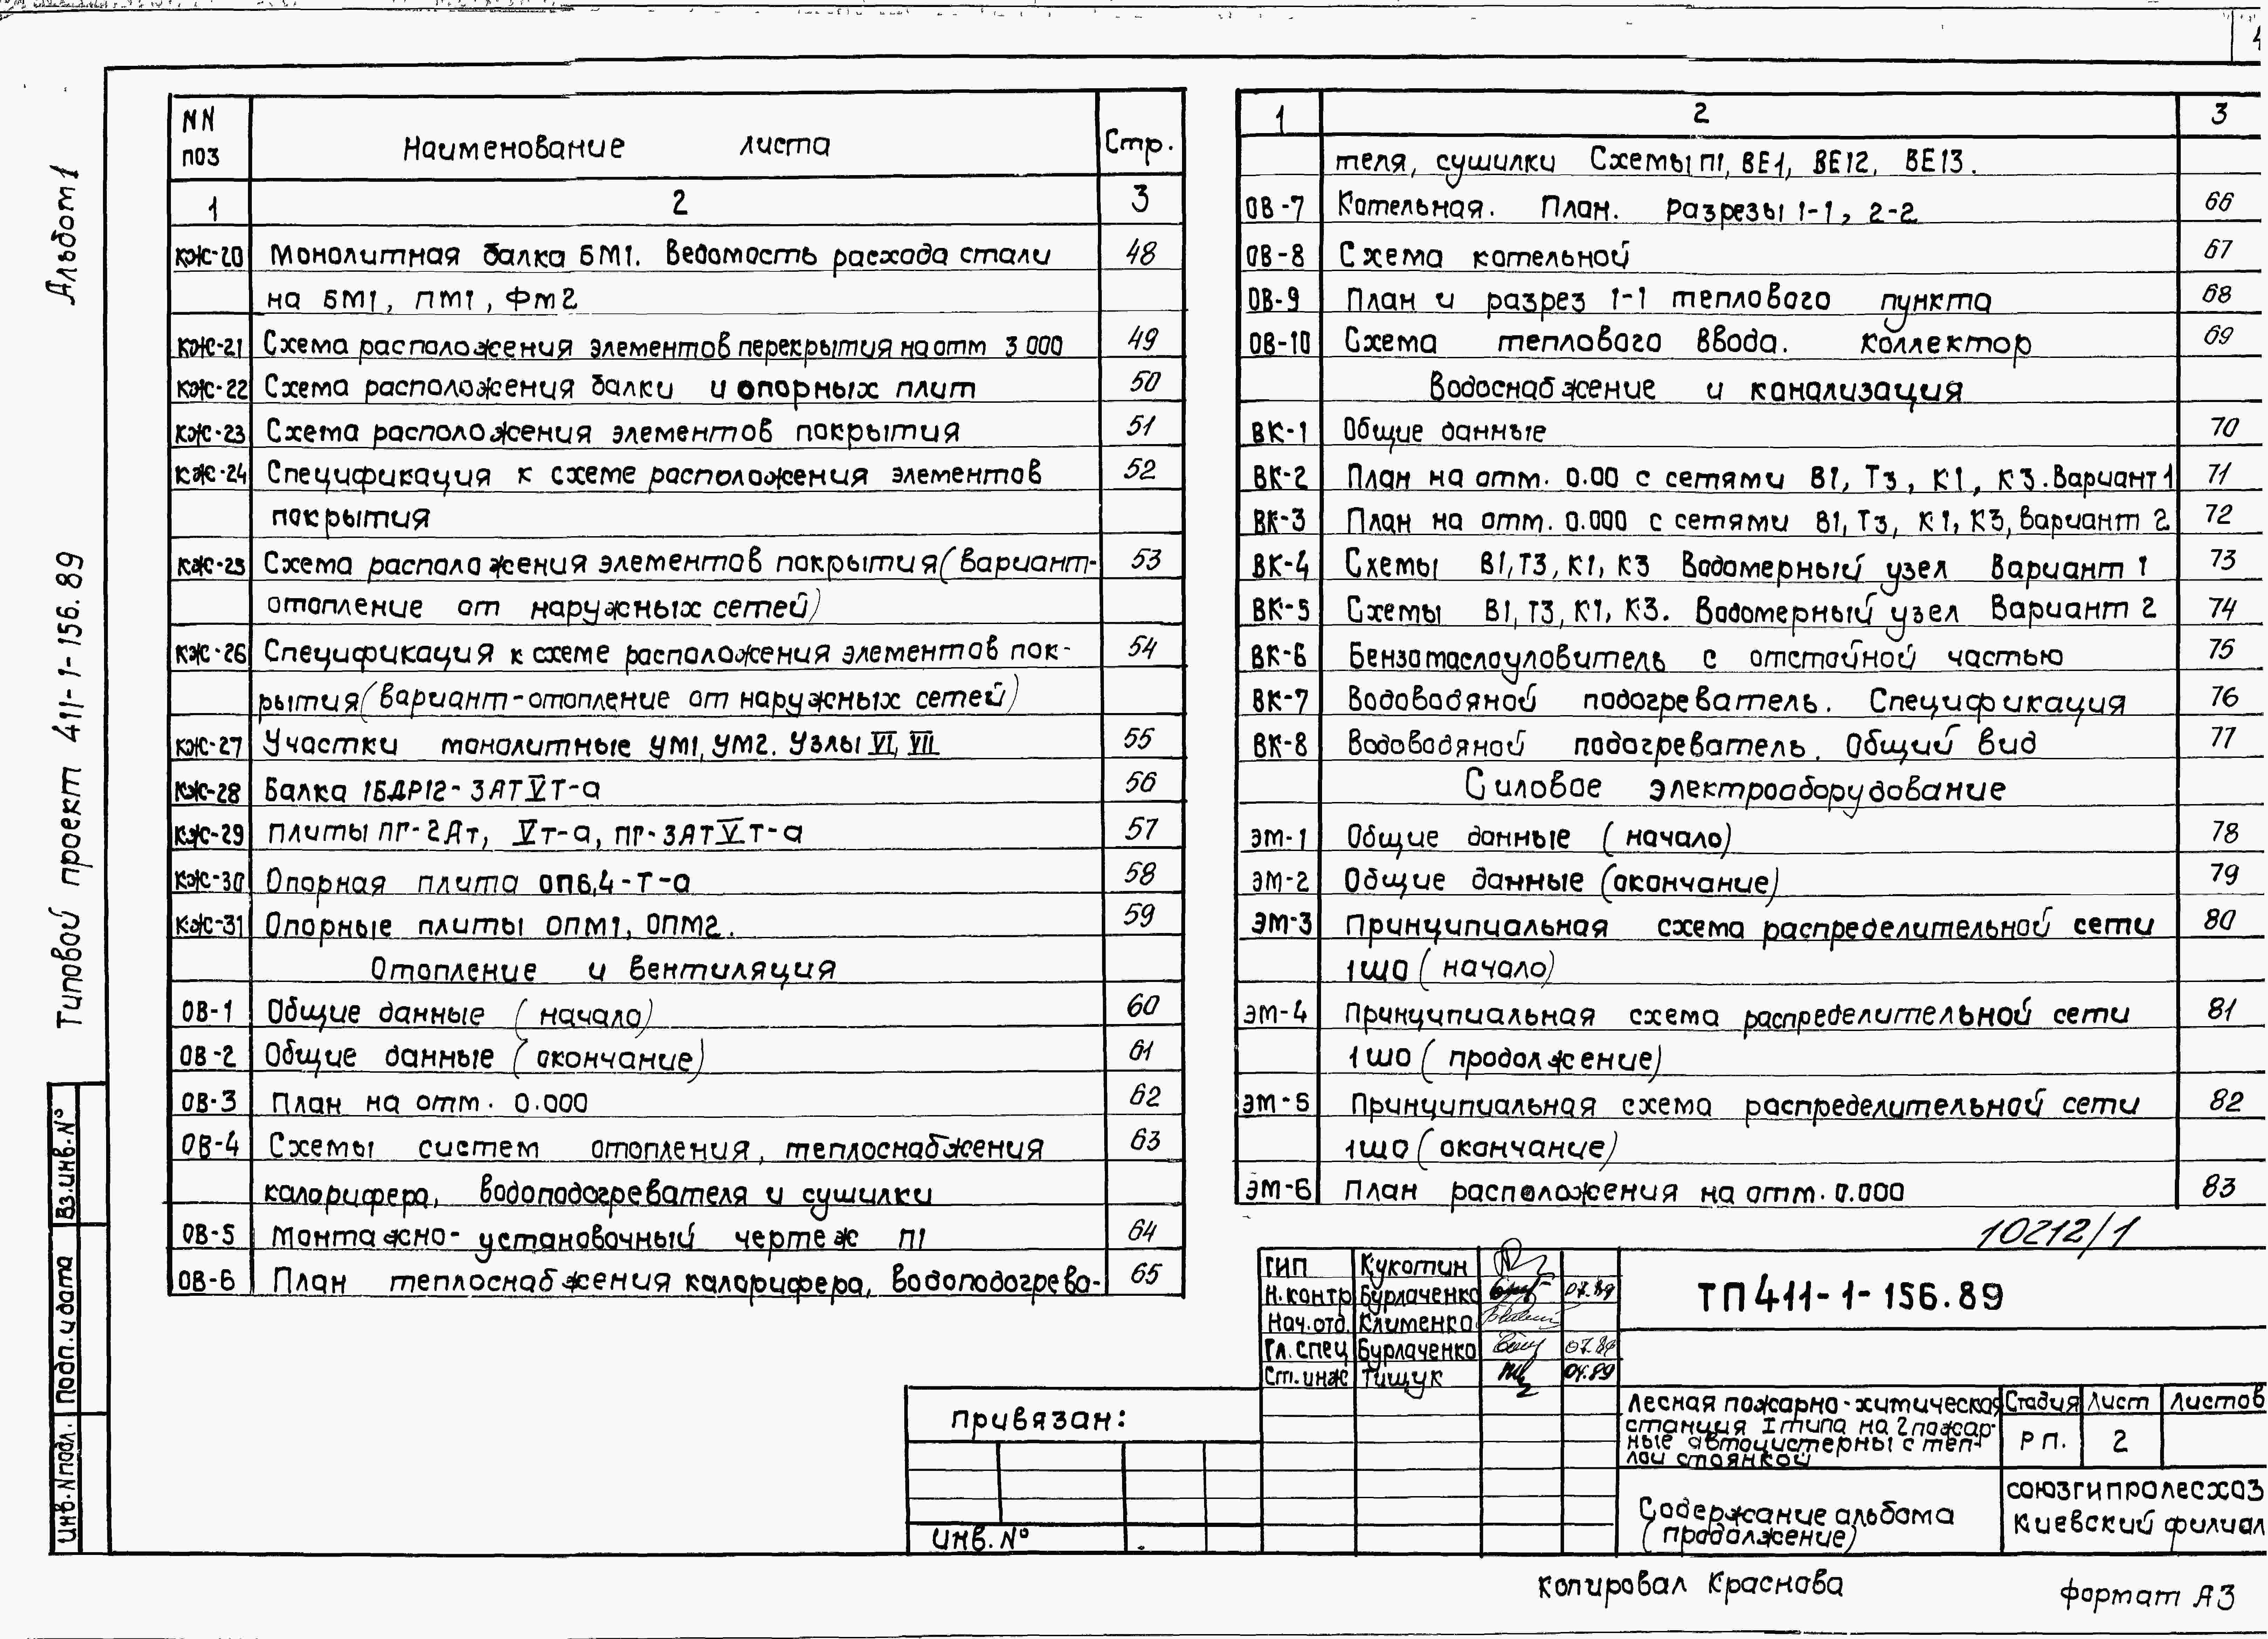 Альбом 1
Типовой проект 411-1-156.89
NN поз | Наименование листа | Стр.
1 | 2 | 3
КЖ-20 | Монолитная балка БМ1. Ведомость расхода стали | 48
на БМ1, ПМ1, ФМ2
КЖ-21 | Схема расположения элементов перекрытия на отм 3 000 | 49
КЖ-22 | Схема расположения балки и опорных плит | 50
КЖ-23 | Схема расположения элементов покрытия | 51
КЖ-24 | Спецификация к схеме расположения элементов | 52
покрытия
КЖ-25 | Схема расположения элементов покрытия (вариант- | 53
отопление от наружных сетей)
КЖ-26 | Спецификация к схеме расположения элементов пок- | 54
рытия (вариант-отопление от наружных сетей)
КЖ-27 | Участки монолитные УМ1, УМ2. Узлы VI, VII | 55
КЖ-28 | Балка 1БДР12-3АТVТ-а | 56
КЖ-29 | Плиты ПГ-2Ат, VТ-а, ПГ-3АТVТ-а | 57
КЖ-30 | Опорная плита ОП6,4-Т-а | 58
КЖ-31 | Опорные плиты ОПМ1, ОПМ2. | 59
Отопление и вентиляция
ОВ-1 | Общие данные (начало) | 60
ОВ-2 | Общие данные (окончание) | 61
ОВ-3 | План на отм. 0.000 | 62
ОВ-4 | Схемы систем отопления, теплоснабжения | 63
калорифера, водоподогревателя и сушилки
ОВ-5 | Монтажно-установочный чертеж П1 | 64
ОВ-6 | План теплоснабжения калорифера, водоподогрева- | 65
1 | 2 | 3
теля, сушилки Схемы П1, ВЕ1, ВЕ12, ВЕ13.
ОВ-7 | Котельная. План. Разрезы 1-1, 2-2 | 66
ОВ-8 | Схема котельной | 67
ОВ-9 | План и разрез 1-1 теплового пункта | 68
ОВ-10 | Схема теплового ввода. Коллектор | 69
Водоснабжение и канализация
ВК-1 | Общие данные | 70
ВК-2 | План на отм. 0.00 с сетями В1, Т3, К1, К3. Вариант 1 | 71
ВК-3 | План на отм. 0.000 с сетями В1, Т3, К1, К3, Вариант 2 | 72
ВК-4 | Схемы В1, Т3, К1, К3 Водомерный узел Вариант 1 | 73
ВК-5 | Схемы В1, Т3, К1, К3. Водомерный узел Вариант 2 | 74
ВК-6 | Бензомаслоуловитель с отстойной частью | 75
ВК-7 | Водоводяной подогреватель. Спецификация | 76
ВК-8 | Водоводяной подогреватель. Общий вид | 77
Силовое электрооборудование
ЭМ-1 | Общие данные (начало) | 78
ЭМ-2 | Общие данные (окончание) | 79
ЭМ-3 | Принципиальная схема распределительной сети | 80
1ШО (начало)
ЭМ-4 | Принципиальная схема распределительной сети | 81
1ШО (продолжение)
ЭМ-5 | Принципиальная схема распределительной сети | 82
1ШО (окончание)
ЭМ-6 | План расположения на отм. 0.000 | 83
10212/1
ГИП | Кукотин
Н.контр | Бурлаченко | 07.89
Нач.отд. | Клименко
Гл.спец | Бурлаченко | 07.89
Ст.инж | Тищук | 04.89
ТП 411-1-156.89
Лесная пожарно-химическая
станция I типа на 2 пожар-
ные автоцистерны с теп-
лой стоянкой
Стадия | Лист | Листов
Р п. | 2
Содержание альбома
(продолжение)
Союзгипролесхоз
Киевский филиал
Привязан:
Инв. №
Вз.инв.№
Подп.и дата
Инв.N подл.
Копировал Краснова
Формат А3